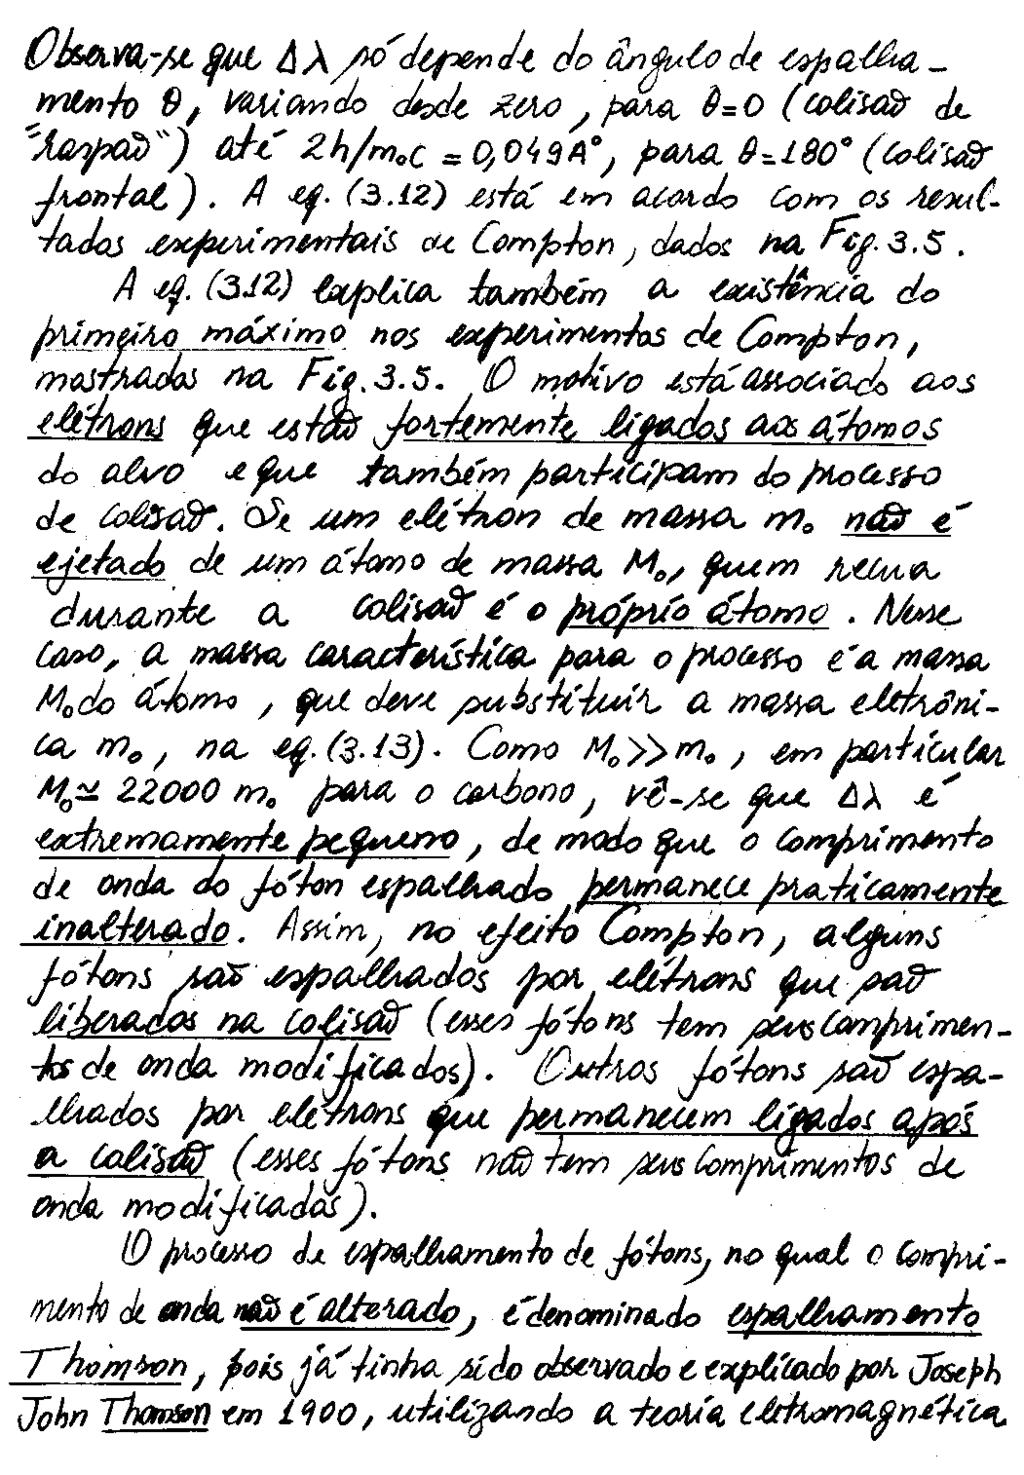 Observa-se que Δλ só depende do ângulo de espalha-
mento θ, variando desde zero, para θ=0 (colisão de
"raspão") até 2h/m₀c = 0,049A°, para θ=180° (colisão
frontal). A eq. (3.12) está em acordo com os resul-
tados experimentais de Compton, dados na Fig. 3.5.
A eq. (3.12) explica também a existência do
primeiro máximo nos experimentos de Compton,
mostrados na Fig. 3.5. O motivo está associado aos
elétrons que estão fortemente ligados aos átomos
do alvo e que também participam do processo
de colisão. Se um elétron de massa m₀ não é
ejetado de um átomo de massa M₀, quem recua
durante a colisão é o próprio átomo. Nesse
caso, a massa característica para o processo é a massa
M₀ do átomo, que deve substituir a massa eletrôni-
ca m₀, na eq. (3.13). Como M₀>>m₀, em particular
M₀≃ 22000 m₀ para o carbono, vê-se que Δλ é
extremamente pequeno, de modo que o comprimento
de onda do fóton espalhado permanece praticamente
inalterado. Assim, no efeito Compton, alguns
fótons são espalhados por elétrons que são
liberados na colisão (esses fótons tem seus comprimen-
tos de onda modificados). Outros fótons são espa-
lhados por elétrons que permanecem ligados após
a colisão (esses fótons não tem seus comprimentos de
onda modificados).
O processo de espalhamento de fótons, no qual o compri-
mento de onda não é alterado, é denominado espalhamento
Thomson, pois já tinha sido observado e explicado por Joseph
John Thomson em 1900, utilizando a teoria eletromagnética